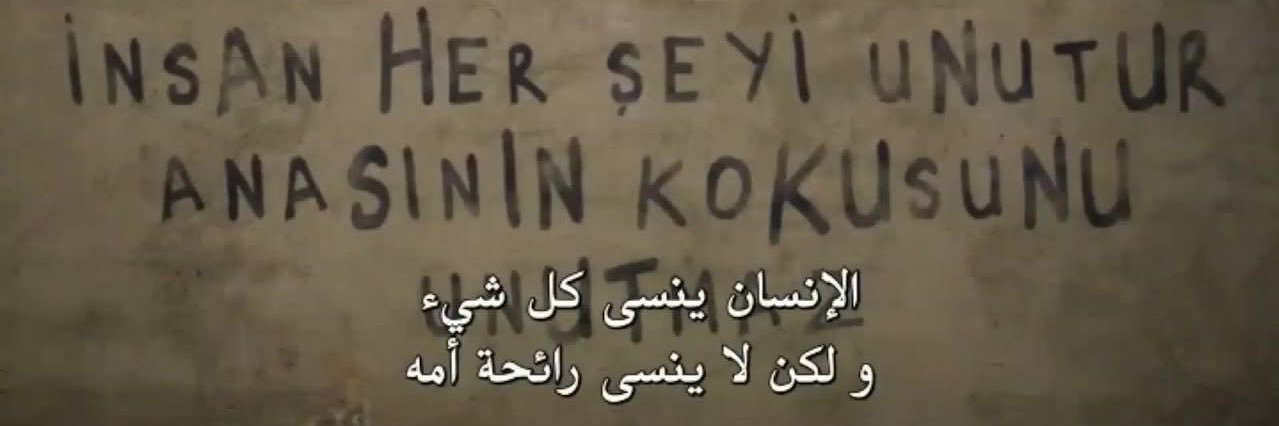 İNSAN HER ŞEYİ UNUTUR
ANASININ KOKUSUNU
UNUTMAZ
الإنسان ينسى كل شيء
و لكن لا ينسى رائحة أمه